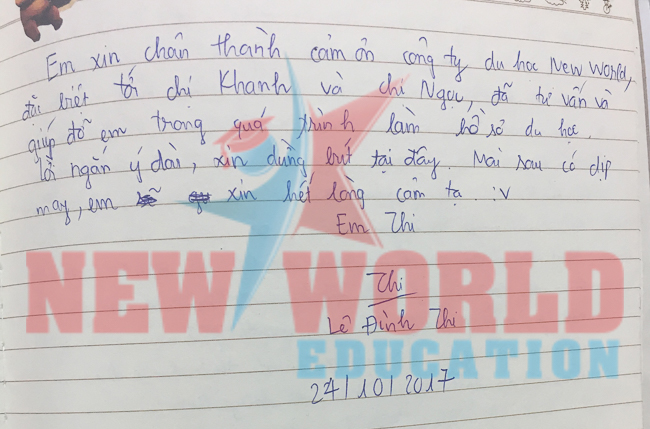 Em xin chân thành cảm ơn công ty du học New World,
đặc biệt tới chị Khanh và chị Ngọc, đã tư vấn và
giúp đỡ em trong quá trình làm hồ sơ du học.
Lời ngắn ý dài, xin dừng bút tại đây. Mai sau có dịp
may, em xin hết lòng cảm tạ :v
Em Thi
Thi
Lê Đình Thi
24/10/2017
NEW WORLD
EDUCATION